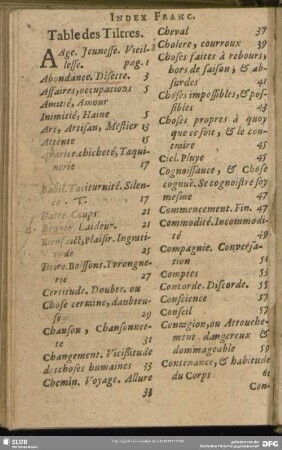 INDEX FRANC.
Table des Tiltres.
Age. Jeunesse. Vieil-
lesse. pag. 1
Abondance. Disette. 3
Affaires, occupations 5
Amitié, Amour
Inimitié, Haine 5
Art, Artisan, Mestier 13
Attente 15
Avarice, chicheté, Taqui-
nerie 17
Babil. Taciturnité. Silen-
ce 17
Coups 21
Beauté. Laideur. 21
Bienfaict, Plaisir. Ingrati-
tude 25
Boire. Boissons. Yvrongne-
rie 27
Certitude. Doubte. ou
Chose certaine, doubteu-
se 29
Chanson, Chansonnet-
te 31
Changement. Vicissitude
des choses humaines 33
Chemin. Voyage. Allure
33
Cheval 37
Cholere, courroux 39
Choses faites à rebours,
hors de saison, & ab-
surdes 41
Choses impossibles, & pos-
sibles 43
Choses propres à quoy
que ce soit, & le con-
traire 45
Ciel. Pluye 45
Cognoissance, & Chose
cognuë. Se cognoistre soy
mesme 47
Commencement. Fin. 47
Commodité. Incommodi-
té 49
Compagnie. Conversa-
tion 51
Comptes 53
Concorde. Discorde. 55
Conscience 57
Conseil 57
Contagion, ou Attouche-
ment dangereux &
dommageable 59
Contenance, & habitude
du Corps 61
Con-
SLUB
DFG